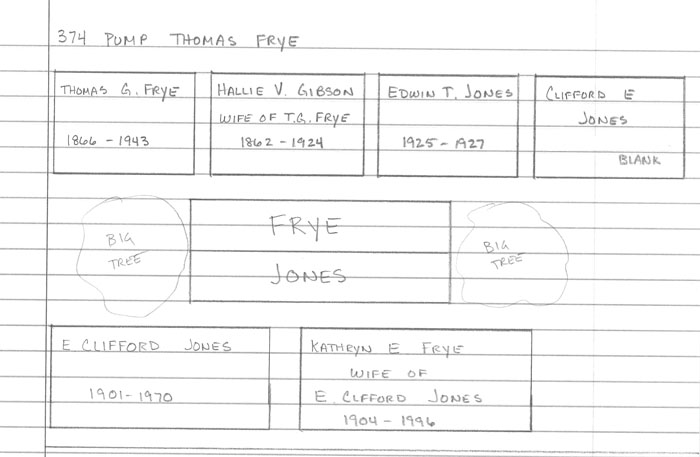 374 PUMP THOMAS FRYE
THOMAS G. FRYE
1866 - 1943
HALLIE V. GIBSON
WIFE OF T.G. FRYE
1862 - 1924
EDWIN T. JONES
1925 - 1927
CLIFFORD E
JONES
BLANK
BIG
TREE
FRYE
JONES
BIG
TREE
E CLIFFORD JONES
1901 - 1970
KATHRYN E FRYE
WIFE OF
E CLFFORD JONES
1904 - 1996